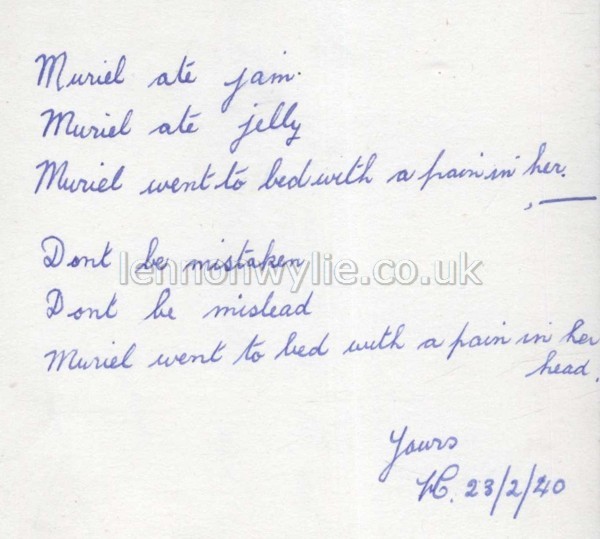 Muriel ate jam.
Muriel ate jelly
Muriel went to bed with a pain in her. , —
Dont be mistaken
lennonwylie.co.uk
Dont be mislead
Muriel went to bed with a pain in her
head.
Yours
23/2/40